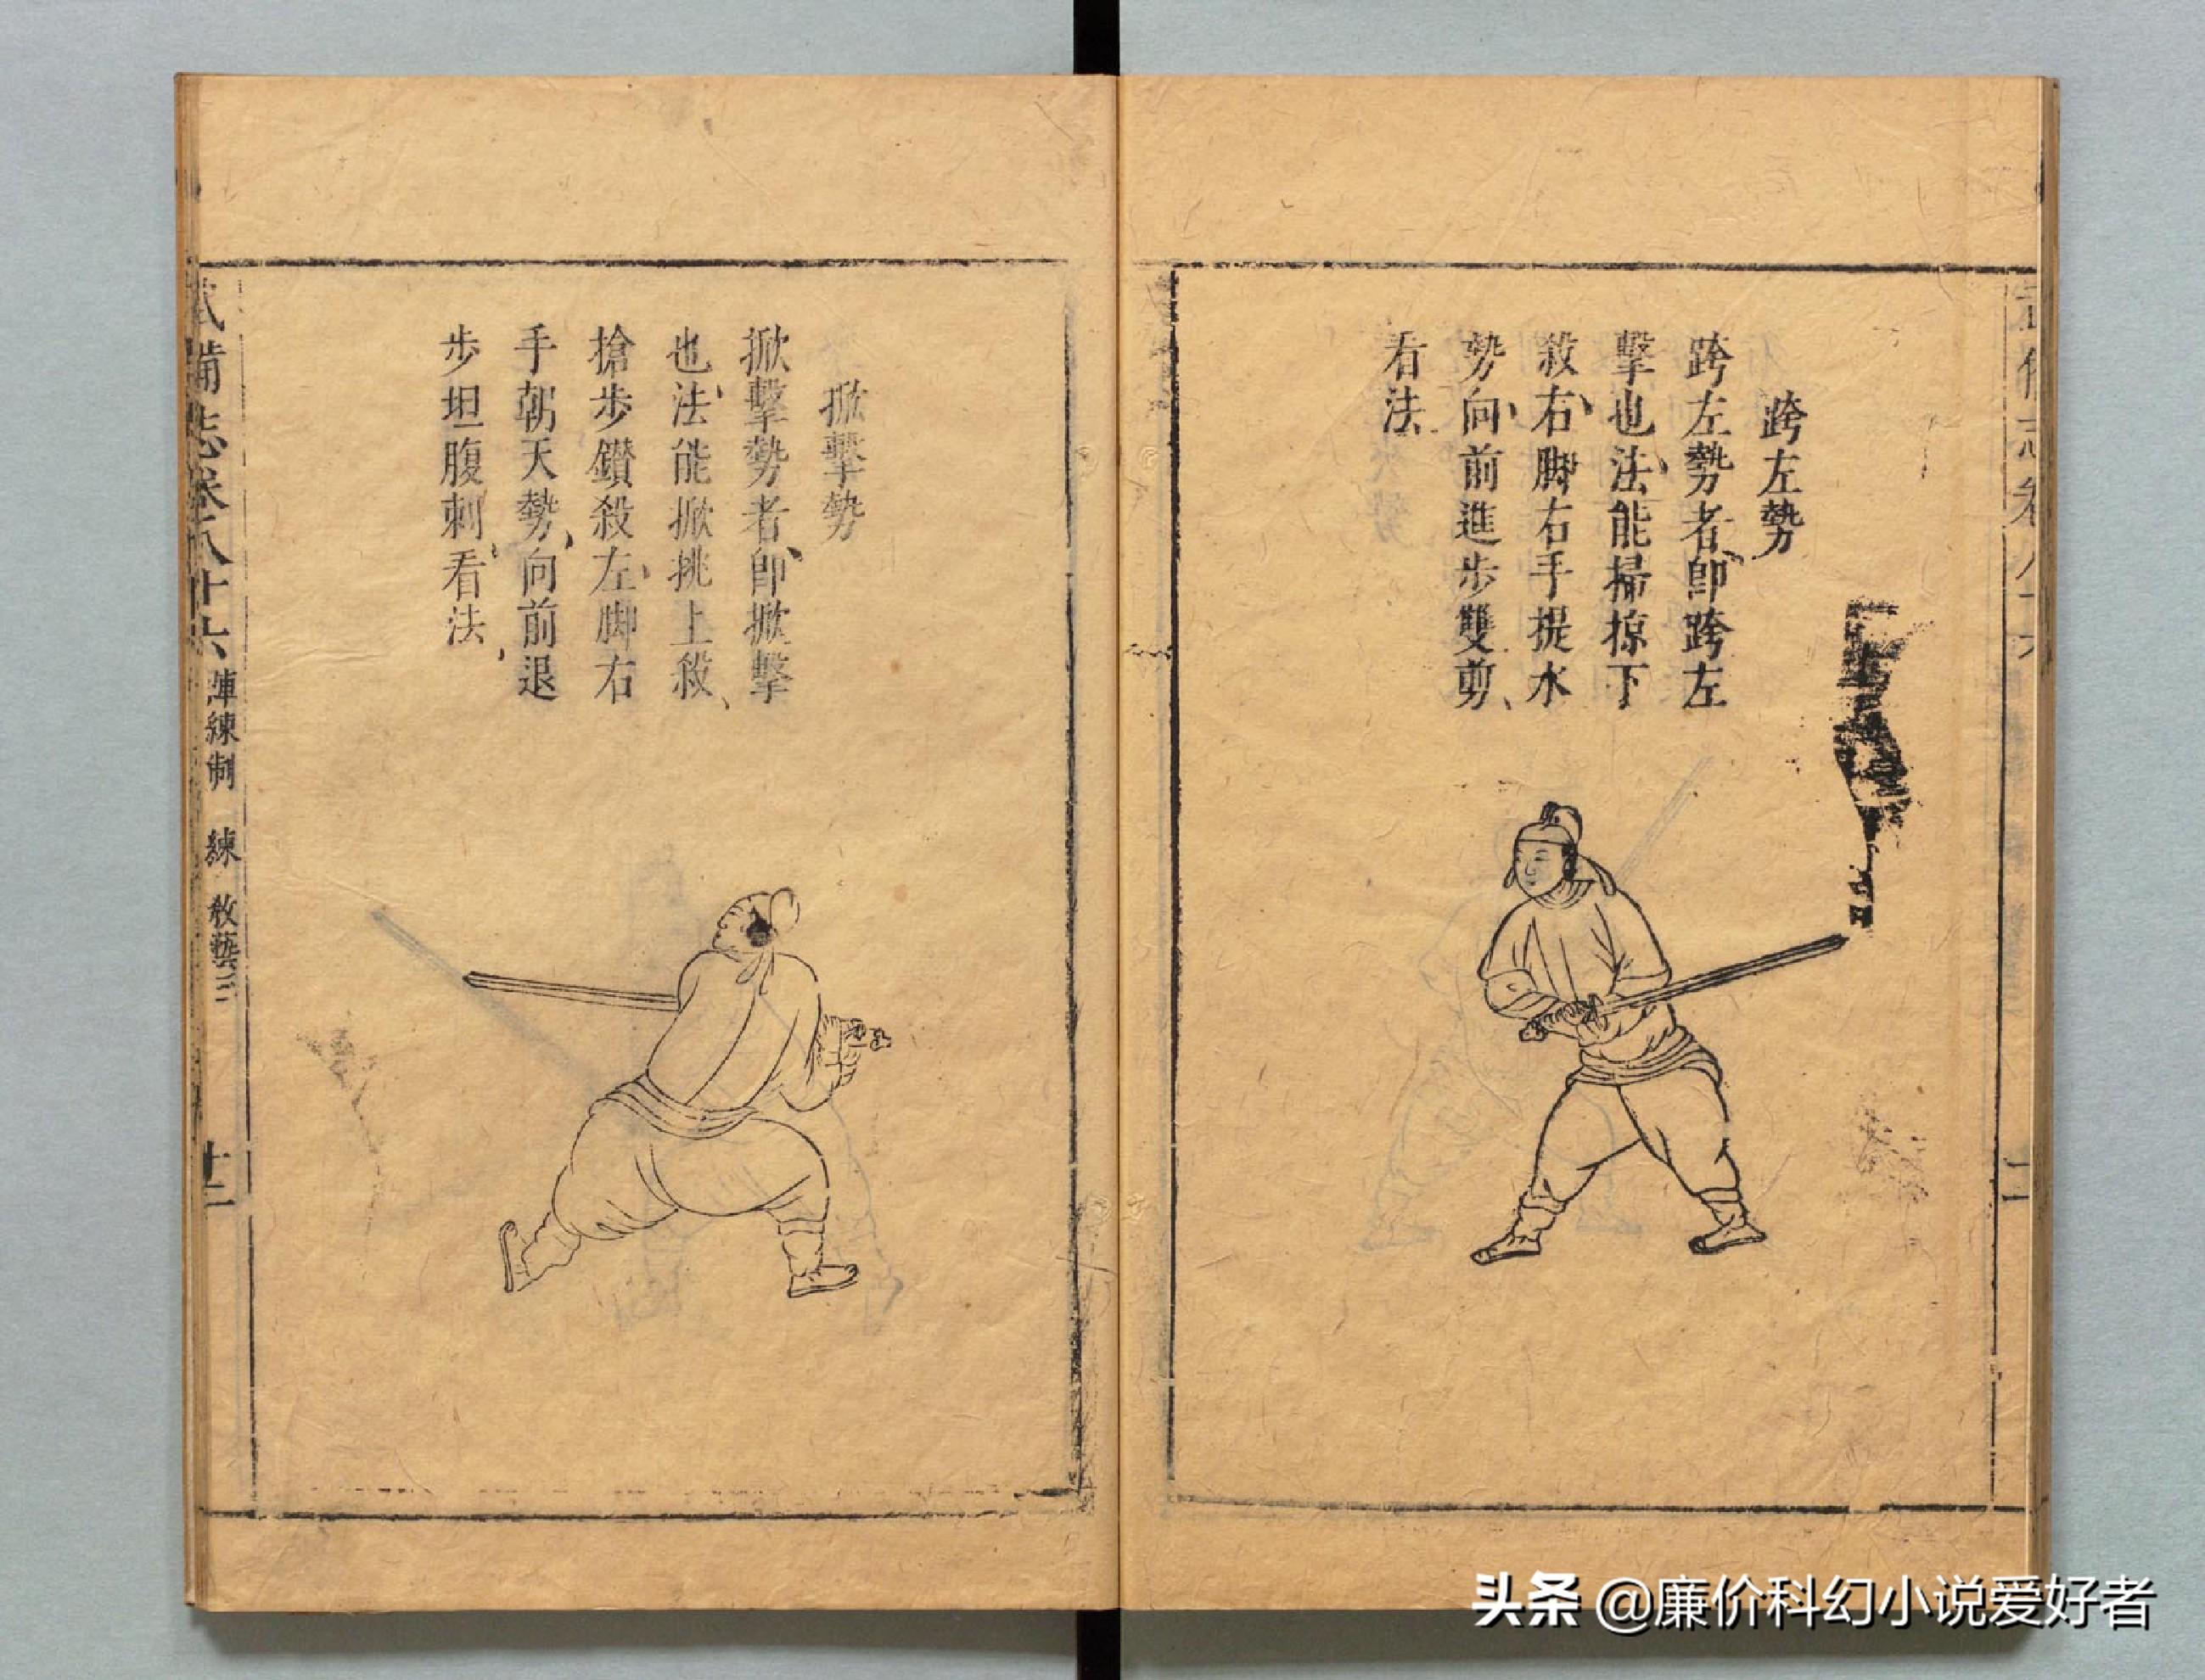 跨左勢
跨左勢者、即跨左
擊也、法能掃掠下
殺、右脚右手提水
勢、向前進步雙剪、
看法
掀擊勢
掀擊勢者、即掀擊
也、法能掀挑上殺、
搶步鑽殺、左脚右
手朝天勢、向前退
步坦腹刺、看法、
武備志卷八十六 陣練制 練 教藝三 十二
头条 @廉价科幻小说爱好者